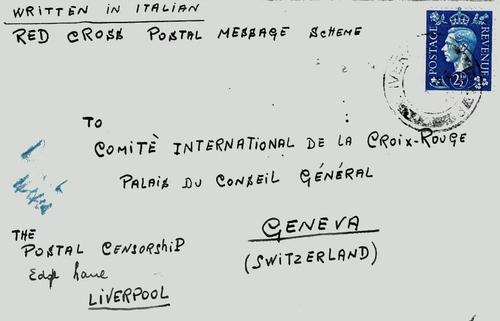 WRITTEN IN ITALIAN
RED CROSS POSTAL MESSAGE SCHEME
POSTAGE REVENUE
2½
TO
COMITÈ INTERNATIONAL DE LA CROIX-ROUGE
PALAIS DU CONSEIL GÉNÉRAL
GENEVA
(SWITZERLAND)
THE
POSTAL CENSORSHIP
Edge Lane
LIVERPOOL